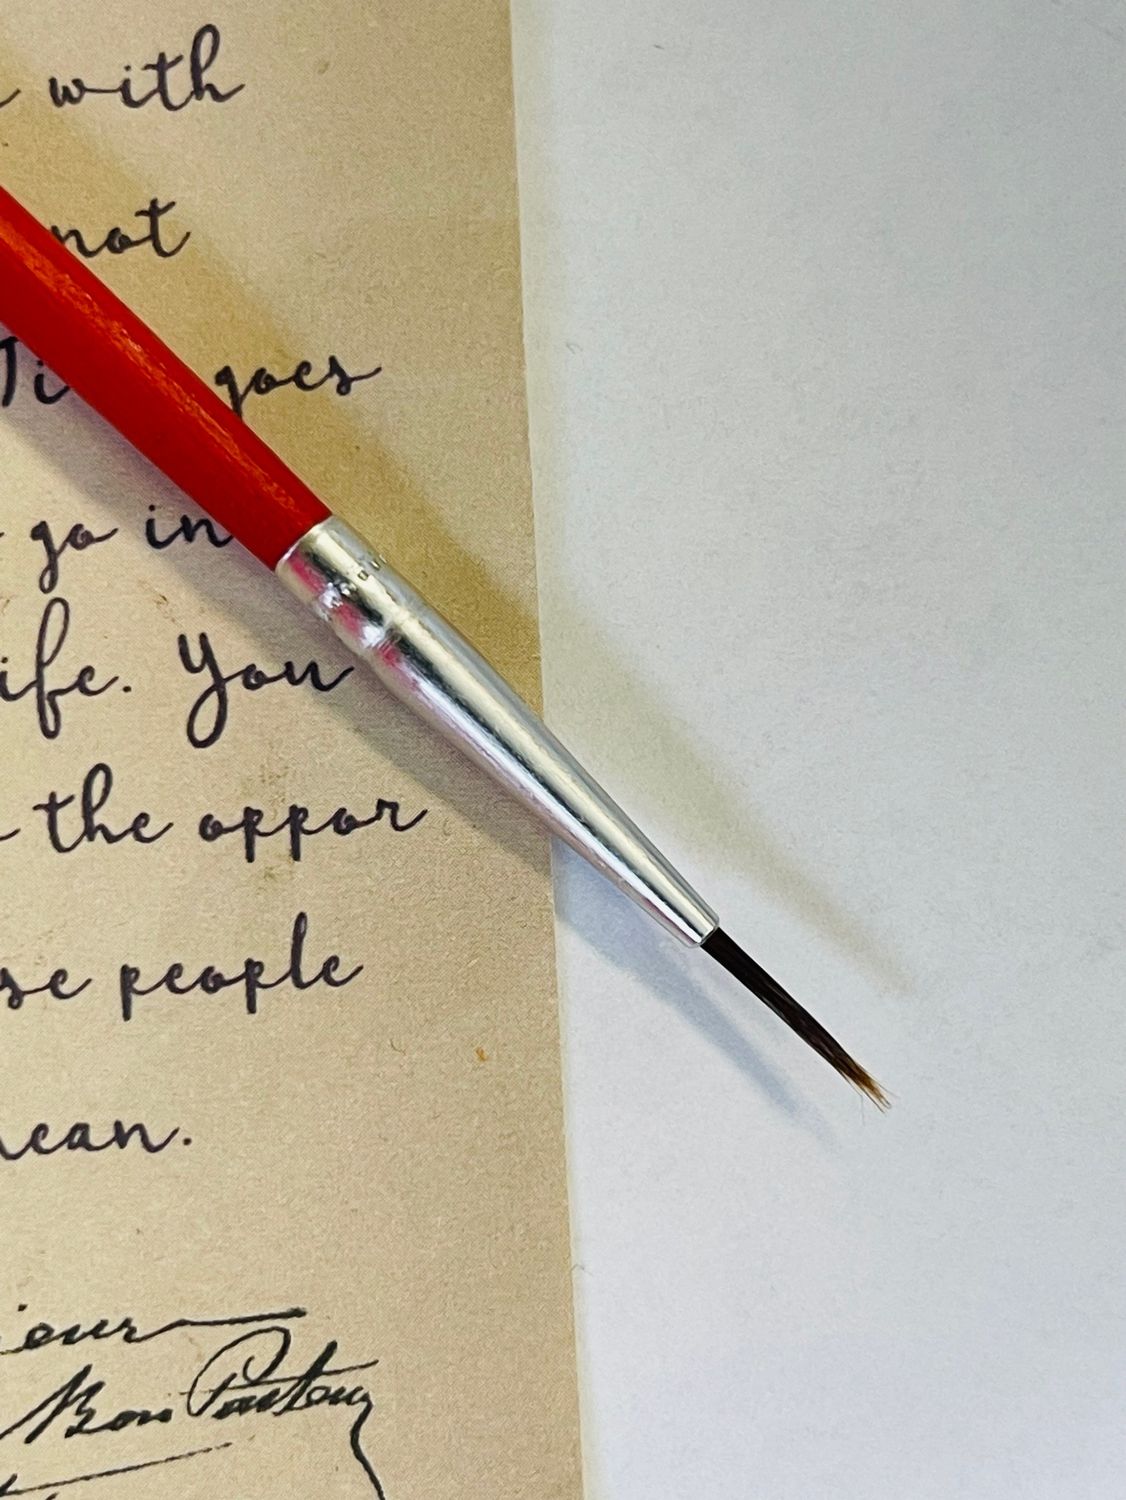 with
not
Ti goes
go in
ife. You
the oppor
se people
ean.
ieur
Bon